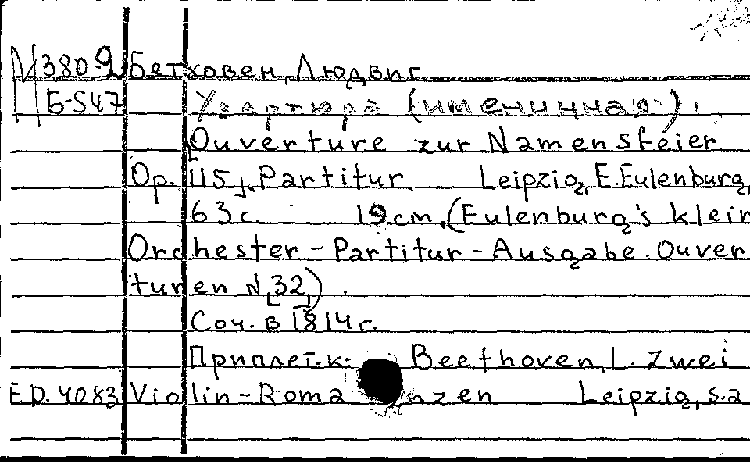 М 3809 Бетховен, Людвиг
Б-547 Увертюра (именинная).
Ouverture zur Namensfeier
Op. 115. Partitur. Leipzig, E. Eulenburg,
63 с. 19 cm. (Eulenburg's klein
Orchester-Partitur-Ausgabe. Ouver
turen N 32).
Соч. в 1814 г.
Приплет. к: Beethoven, L. Zwei
E.D. 4083 Violin-Romanzen Leipzig, s.a